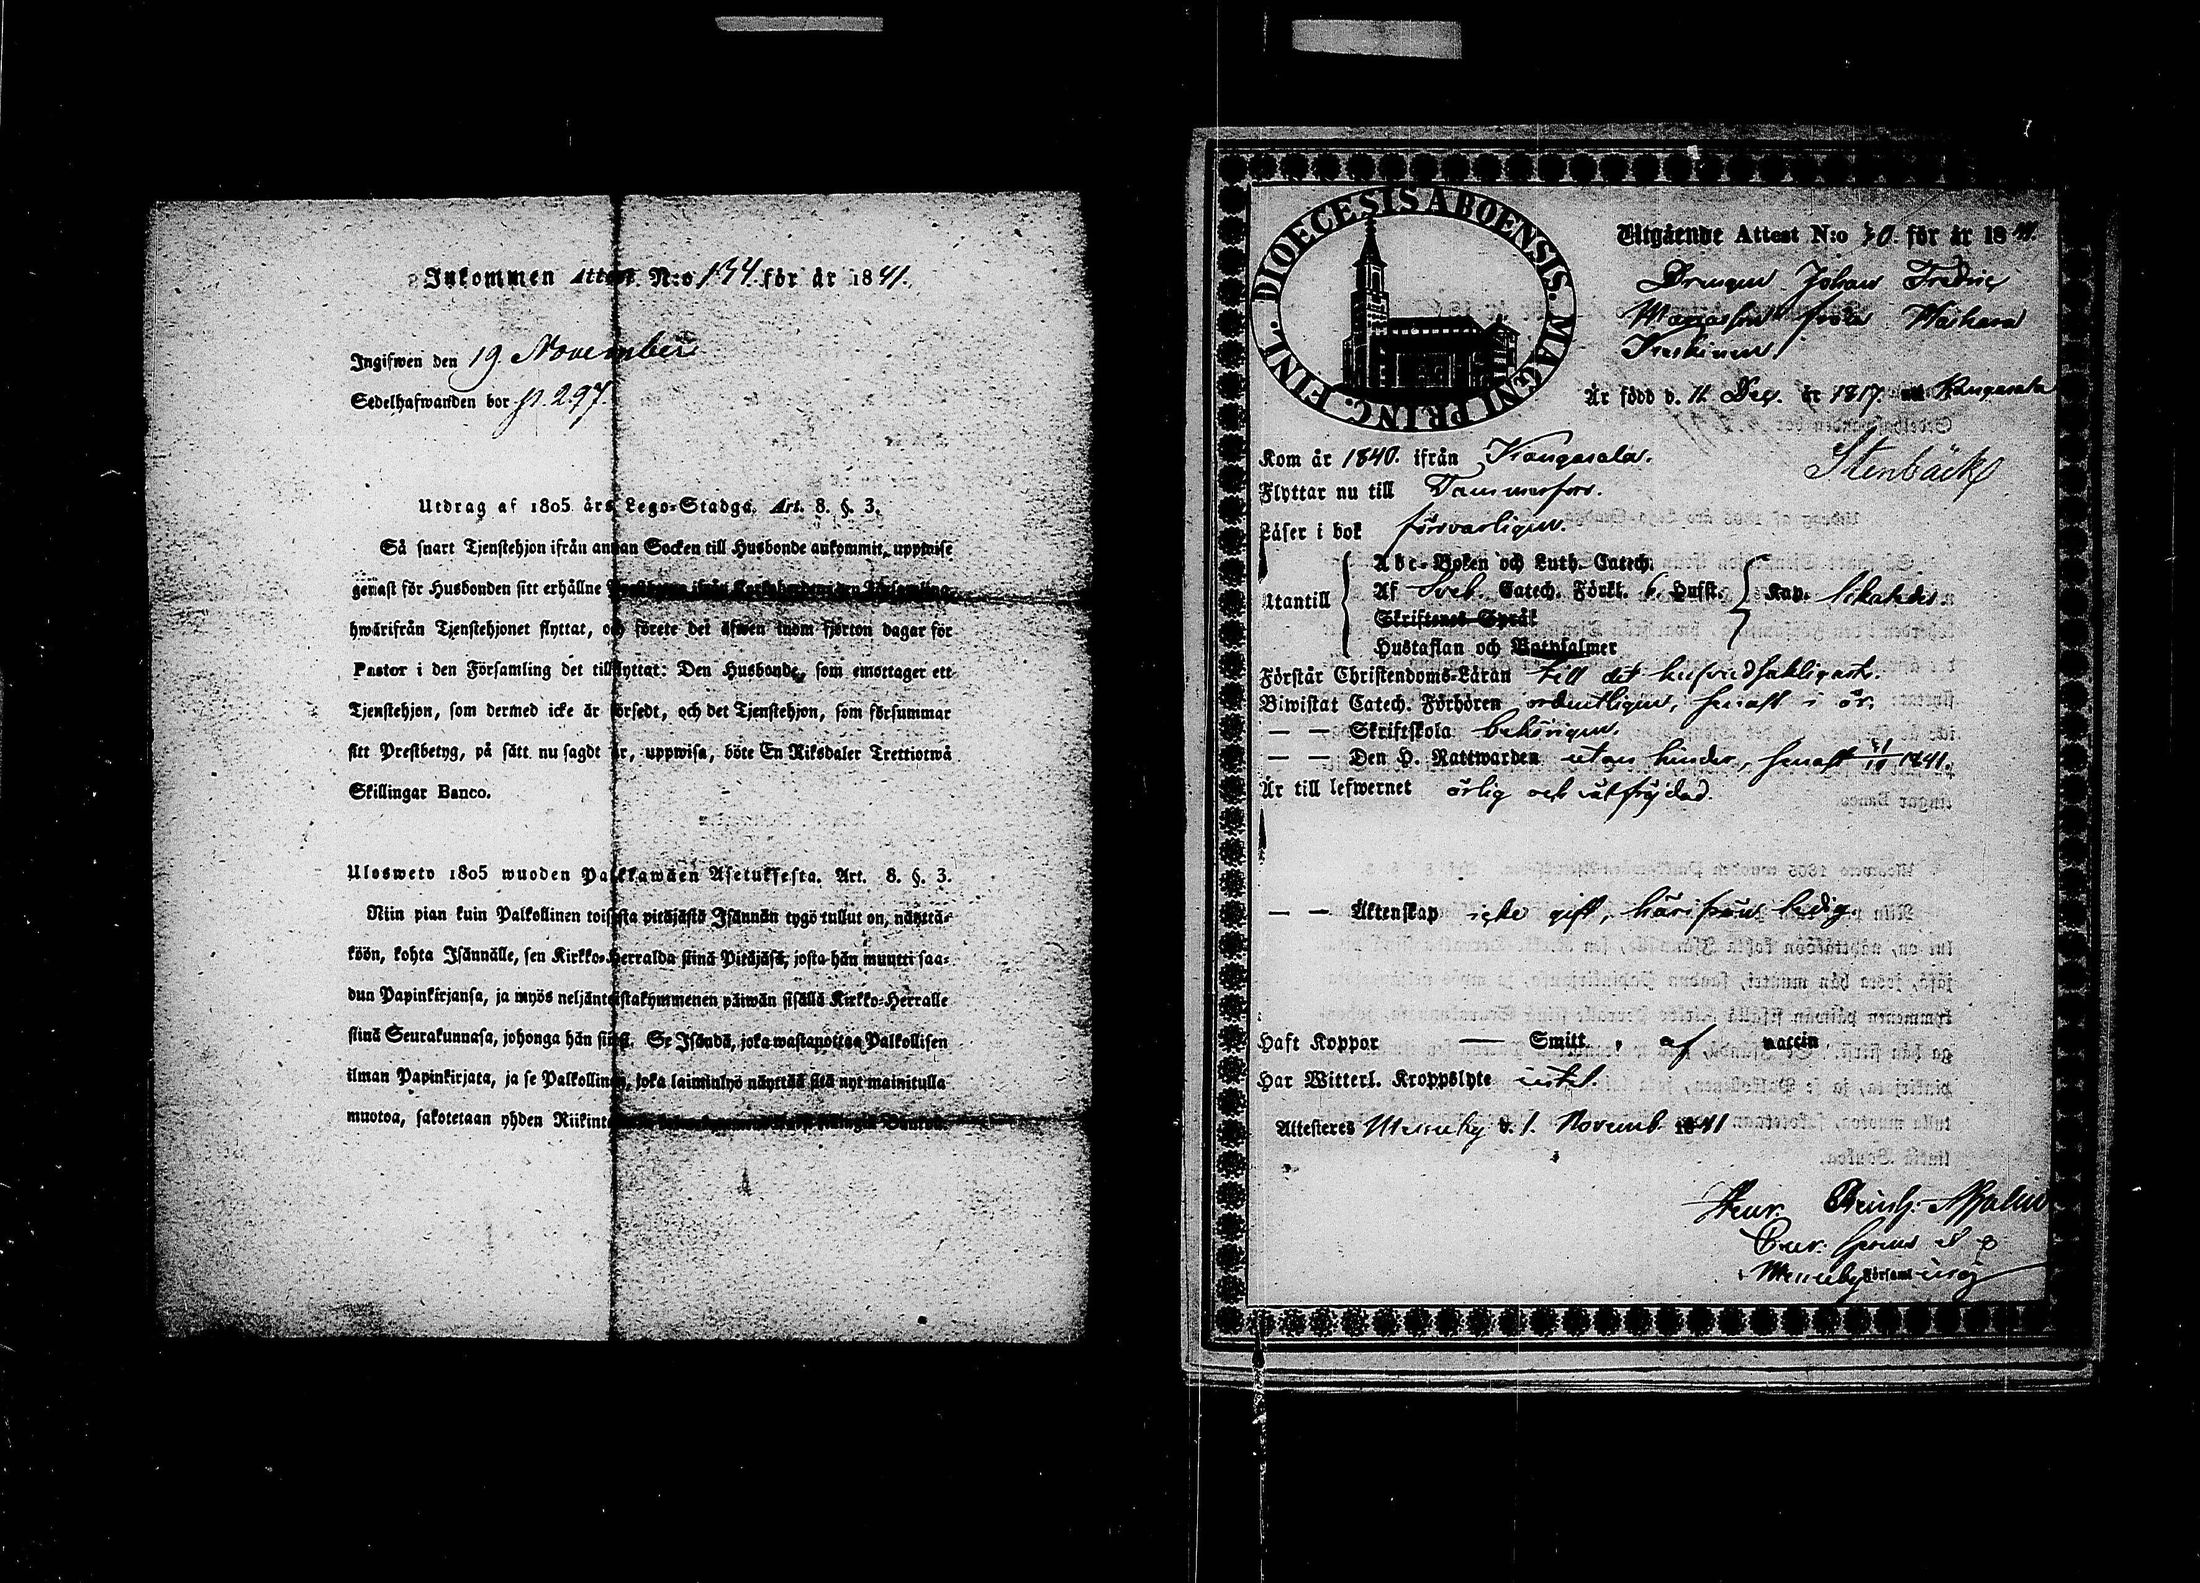 Inkommen Attest N:o 134. för år 1841.
Ingifwen den 19 November
Sedelhafwanden bor p. 297.
Utdrag af 1805 års Lego-Stadga. Art. 8. §. 3.
Så snart Tjenstehjon ifrån annan Socken till Husbonde ankommit, uppwise
genast för Husbonden sitt erhållne
hwarifrån Tjenstehjonet flyttat, och förete det äfwen inom fjorton dagar för
Pastor i den Församling det tillflyttat: Den Husbonde, som emottager ett
Tjenstehjon, som dermed icke är försedt, och det Tjenstehjon, som försummar
sitt Prestbetyg, på sätt nu sagdt är, uppwisa, böte En Riksdaler Trettiotwå
Skillingar Banco.
Ulosweto 1805 wuoden Palkkawäen Asetuksesta. Art. 8. §. 3.
Niin pian kuin Palkollinen toisesta pitäjästä Isännän tygö tullut on, näyttä-
köön, kohta Isännälle, sen Kirkko-Herralda siinä Pitäjäsä, josta hän muutti saa-
dun Papinkirjansa, ja myös neljäntoistakymmenen päiwän sisällä Kirkko-Herralle
siinä Seurakunnasa, johonga hän siirsi. Se Isändä, joka wastanottaa Palkollisen
ilman Papinkirjata, ja se Palkollinen, joka laiminlyö näyttää sitä nyt mainitulla
muotoa, sakotetaan yhden
DIOECESIS ABOENSIS. MAGNI PRINC. FINL.
Utgående Attest N:o 30. för år 1841.
Drengen Johan Fredric
från
Är född d. 11 Dec. år 1817. Kangasala
Stenbäck
Kom år 1840. ifrån Kangasala.
Flyttar nu till Tammerfors.
Läser i bok försvarligen.
Abc-Boken och Luth. Catech.
Utantill Af Sveb. Catech. Förkl. 6. Hufst. Kap.
Skriftenes Språk
Hustaflan och Botpsalmer
Förstår Christendoms-Läran till det hufvudsakligaste.
Biwistat Catech. Förhören ordentligen, senast i år.
— — Skriftskola behörigen.
— — Den H. Nattwarden utan hinder, senast 1841.
Är till lefwernet ärlig och
— — Äktenskap icke gift, härifrån ledig.
Haft Koppor — Smitt. af vaccin
Har Witterl. Kroppslyte intet.
Attesteres Messuby d. 1. Novemb. 1841
Henr. Reinh.
i Messuby Församl